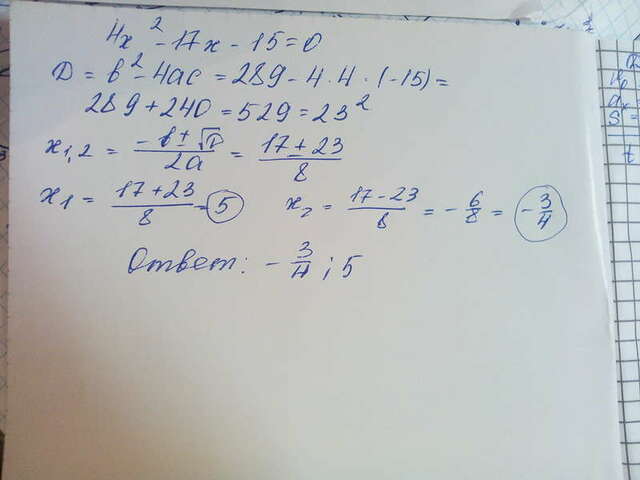 4x² - 17x - 15 = 0
D = b² - 4ac = 289 - 4 · 4 · (-15) =
289 + 240 = 529 = 23²
x₁,₂ = (-b ± √D)/(2a) = (17 ± 23)/8
x₁ = (17 + 23)/8 = 5 x₂ = (17 - 23)/8 = -6/8 = -3/4
Ответ: -3/4 ; 5